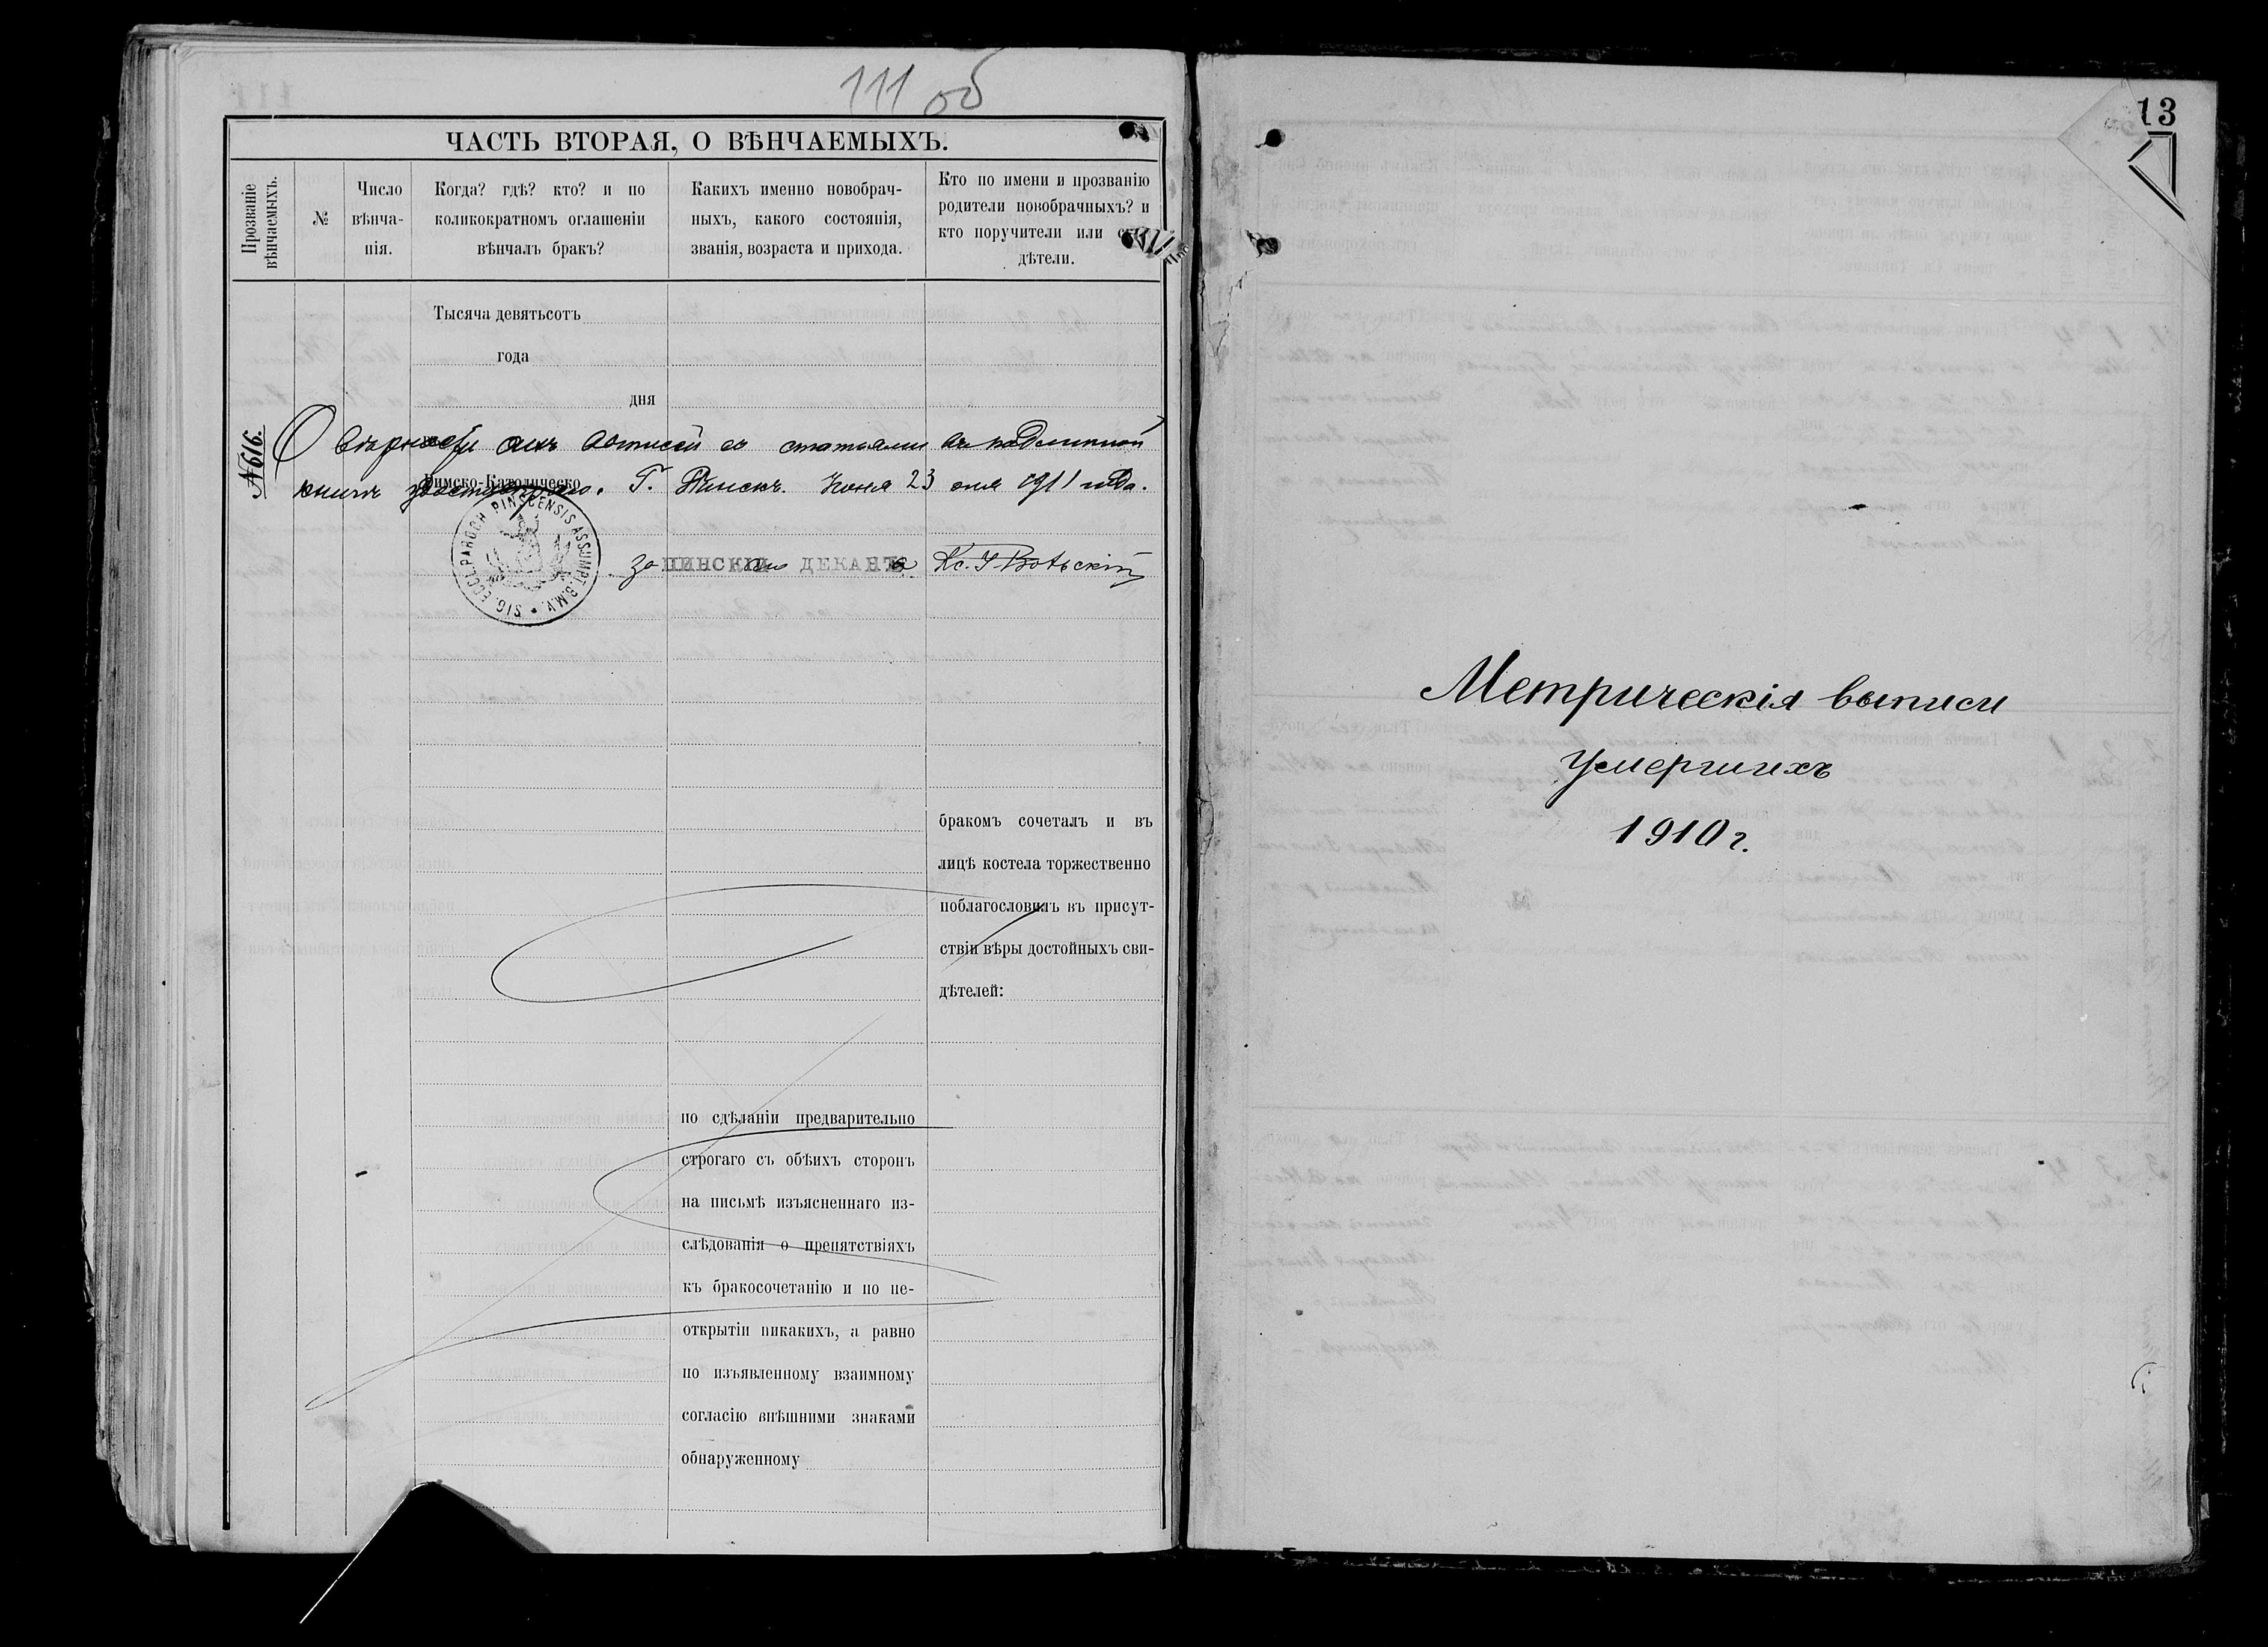 111 об
ЧАСТЬ ВТОРАЯ, О ВѢНЧАЕМЫХЪ.
Прозваніе
вѣнчаемыхъ.
№
Число
вѣнча-
нія.
Когда? гдѣ? кто? и по
коликократномъ оглашеніи
вѣнчалъ бракъ?
Какихъ именно новобрач-
ныхъ, какого состоянія,
званія, возраста и прихода.
Кто по имени и прозванію
родители новобрачныхъ? и
кто поручители или
дѣтели.
Тысяча девятьсотъ
года
дня
№616.
О вѣрности сихъ выписей съ статьями въ подлинной
книгѣ удостовѣряю. Г. Пинскъ. Іюня 23 дня 1911 года.
Римско-Католическо
SIG. ECCL. PAROCH. PINSCENSIS ASSUMPT. B.M.V.
За ПИНСКІЙ ДЕКАНЪ Кс. І.
бракомъ сочеталъ и въ
лицѣ костела торжественно
поблагословилъ въ присут-
ствіи вѣры достойныхъ сви-
дѣтелей:
по сдѣланіи предварительно
строгаго съ обѣихъ сторонъ
на письмѣ изъясненнаго из-
слѣдованія о препятствіяхъ
къ бракосочетанію и по не-
открытіи никакихъ, а равно
по изъявленному взаимному
согласію внѣшними знаками
обнаруженному
13
Метрическія выписи
умершихъ
1910 г.